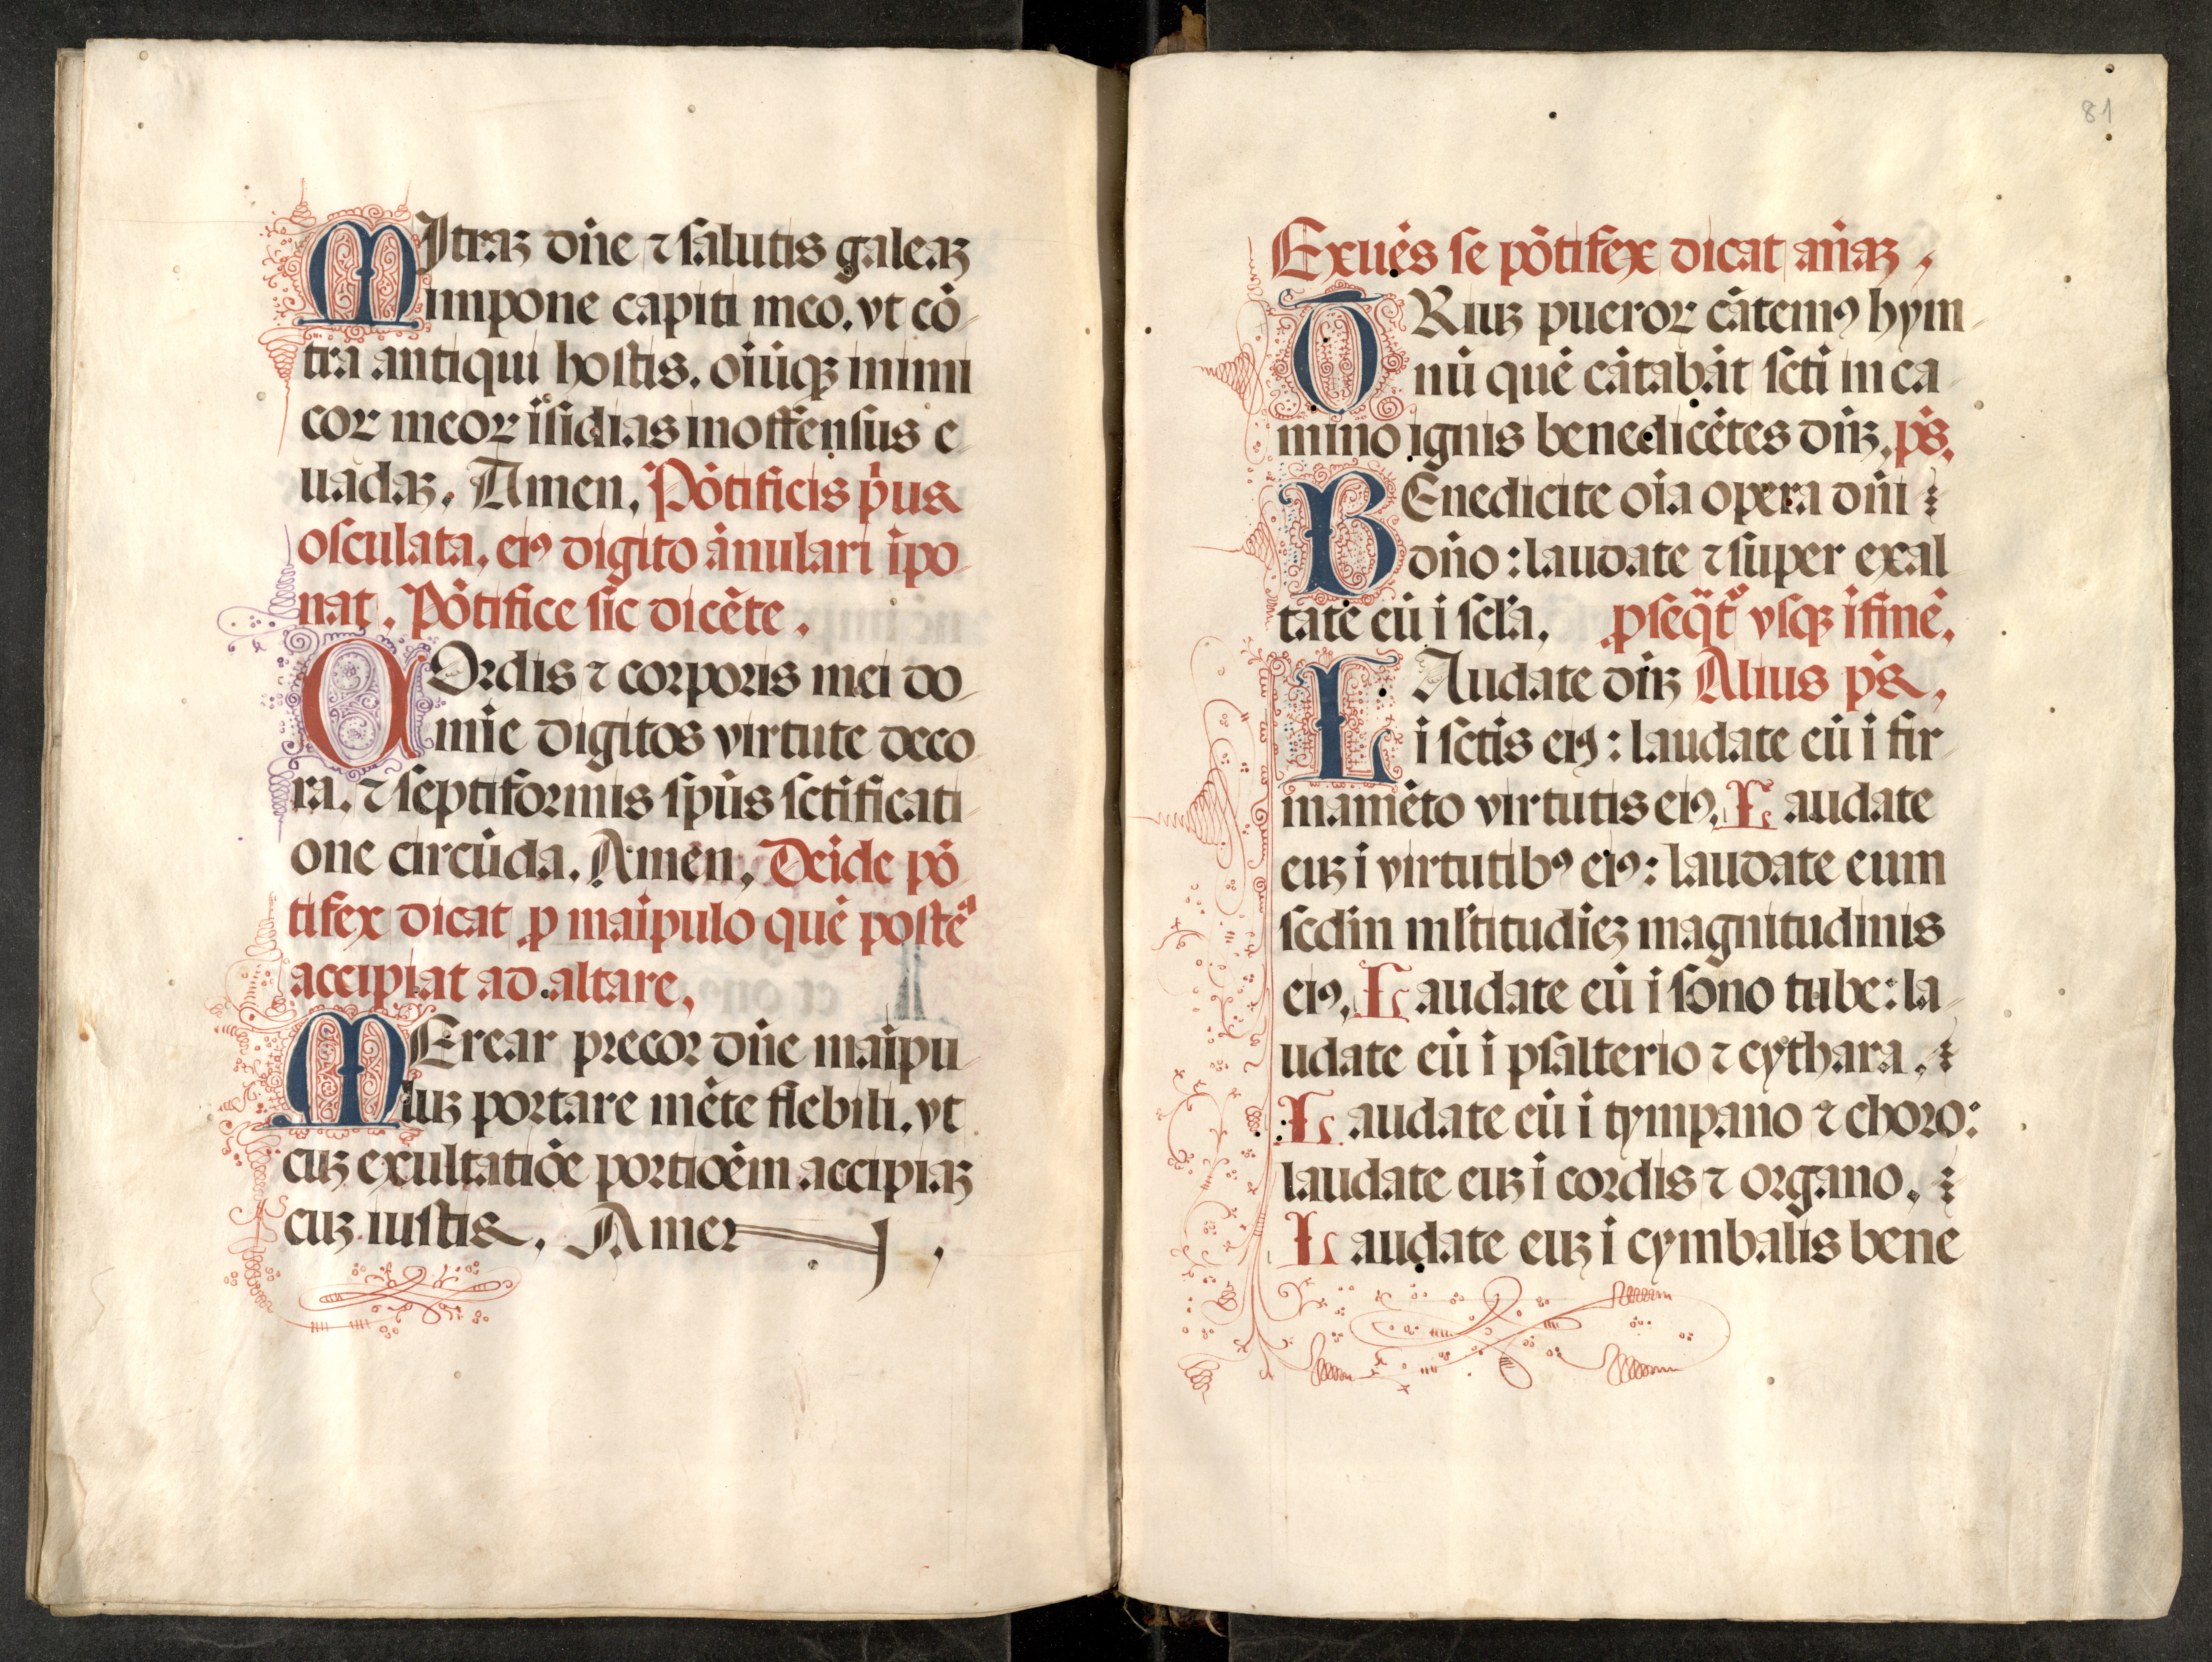 MJtraꝫ dn̄e ⁊ ſalutis galeaꝫ
impone capiti meo. vt cō
tra antiqui hoſtis. oiūqꝫ inimi
coꝝ meoꝝ īſidias inoffenſus e
uadaꝫ. Amen. Pōtificis p̄us
oſculata. eiꝰ digito ānulari īpo
nat. Pōtifice ſic dicēte.
COrdis ⁊ corporis mei do
mīe digitos virtute deco
ra. ⁊ ſeptiformis ſpūs ſctīficati
one circūda. Amen. Deīde pō
tifex dicat ꝓ maīpulo quē poſteᵃ
accipiat ad altare.
MErear precor dn̄e maīpu
luꝫ portare mēte flebili. vt
cuꝫ exultatiōe portioēm accipiaꝫ
cuꝫ iuſtis. Amen.
81
Exuēs ſe pōtifex dicat an̄aꝫ.
TRiuꝫ pueroꝝ cātemꝰ hym
nū quē cātabāt ſcti in ca
mino ignis benedicētes dn̄ꝫ. ps̄.
BEnedicite oīa opera dn̄i
dn̄o: laudate ⁊ ſuper exal
tate eū ī ſcl̄a. ꝓſeq̄t᷑ vſqꝫ īfinē.
LAudate dn̄ꝫ Alius ps̄.
ī ſctīs eiꝰ: laudate eū ī fir
mamēto virtutis eiꝰ. Laudate
euꝫ ī virtutibꝰ eiꝰ: laudate eum
ſcdm̄ ml̄titudīeꝫ magnitudinis
eiꝰ. Laudate eū ī ſono tube: la
udate eū ī pſalterio ⁊ cythara.
Laudate eū ī tympano ⁊ choro:
laudate euꝫ ī cordis ⁊ organo.
Laudate euꝫ ī cymbalis bene